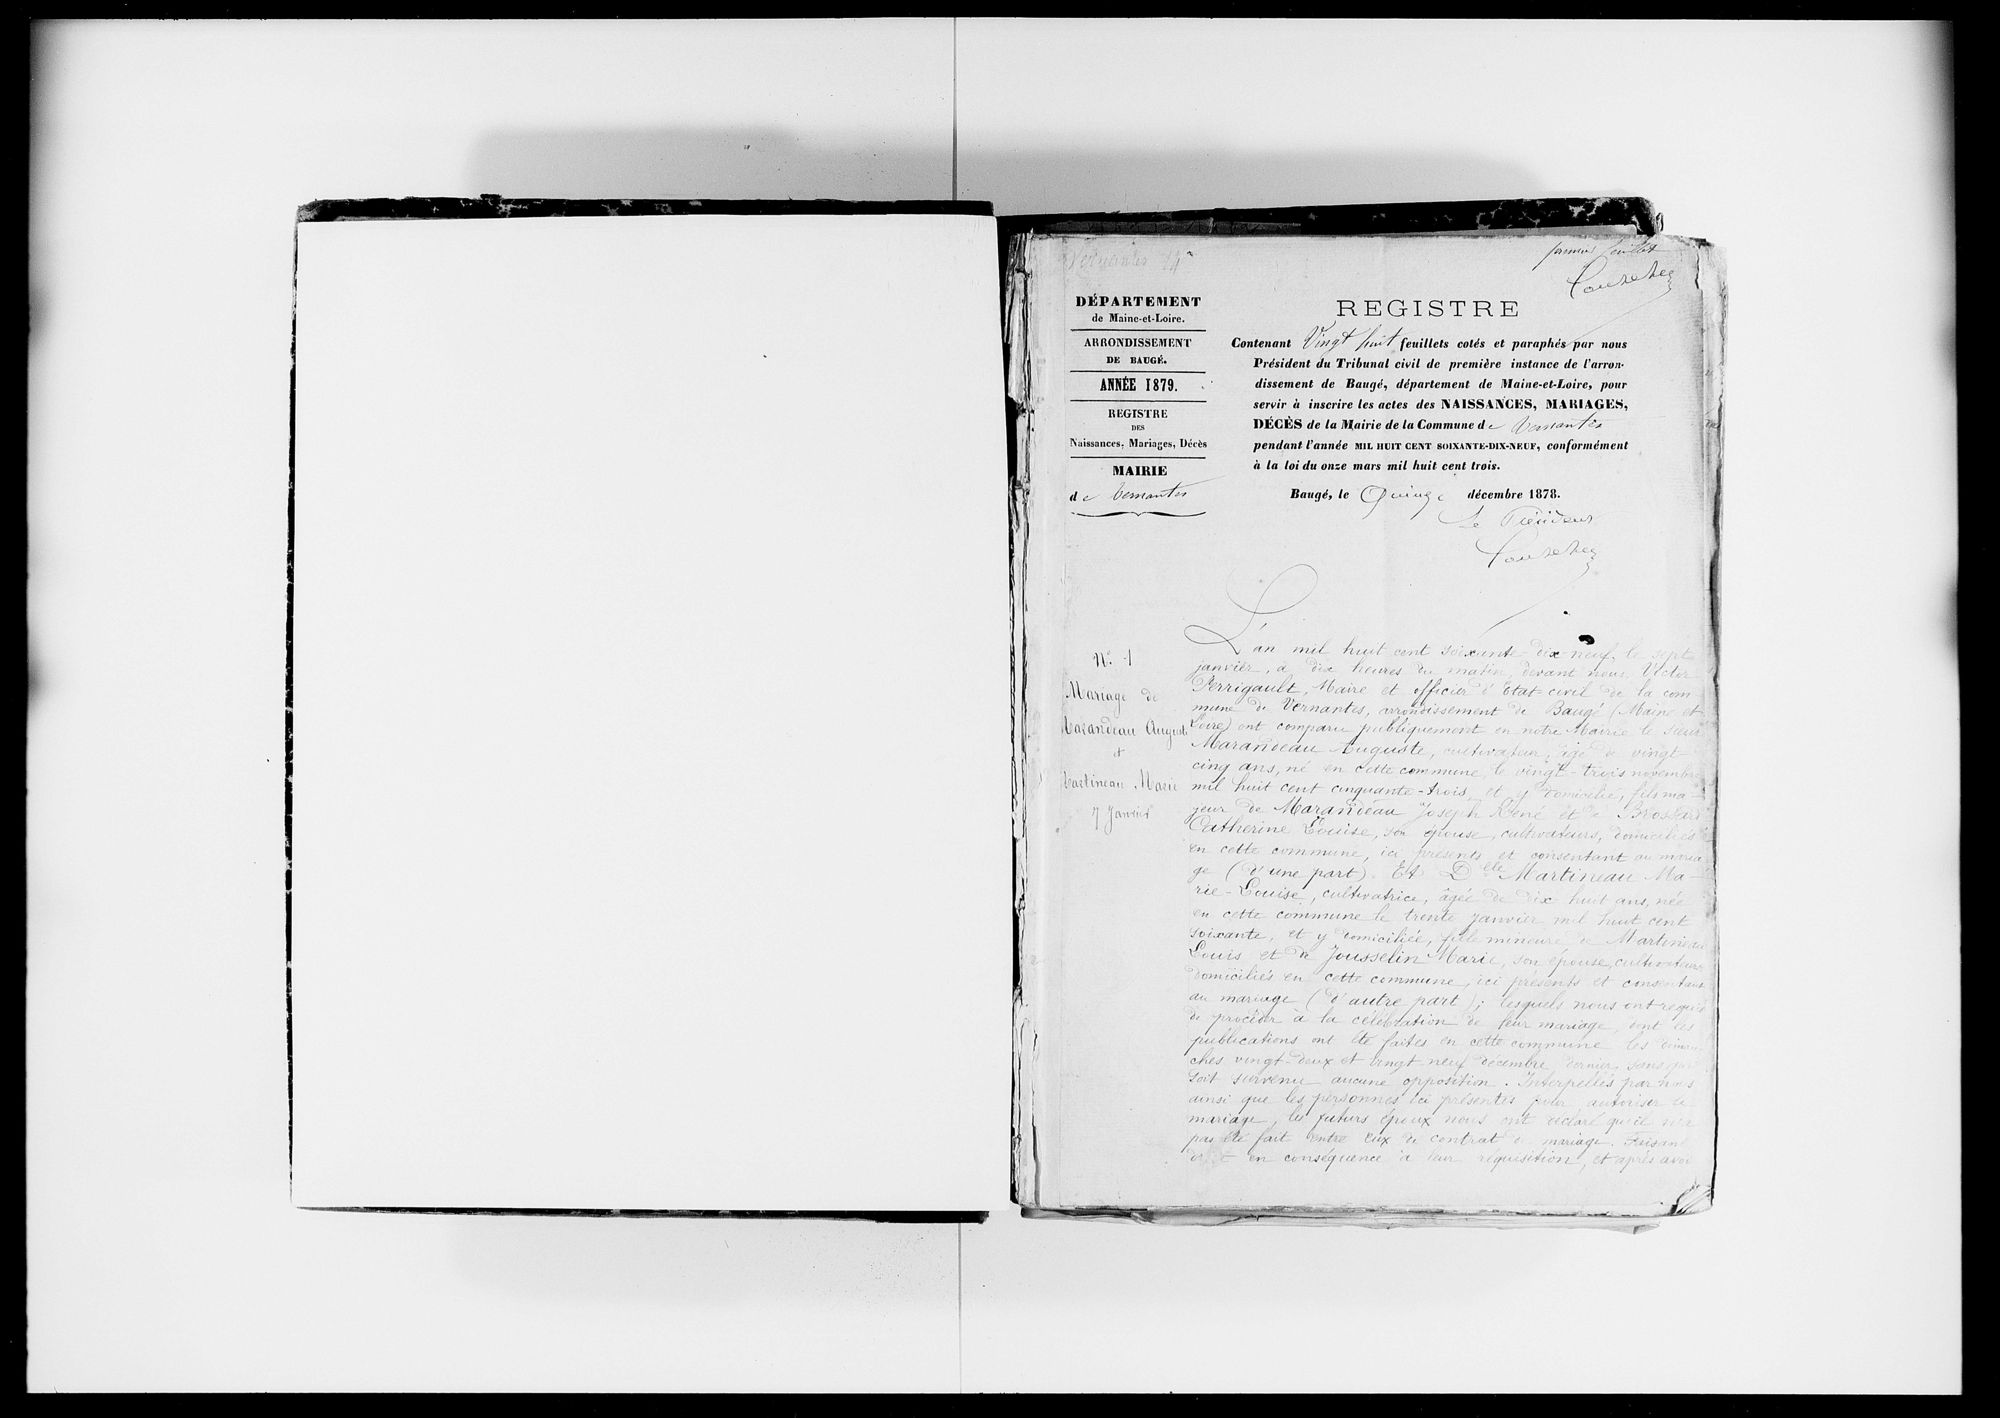 premier feuillet
DÉPARTEMENT
de Maine-et-Loire.
ARRONDISSEMENT
DE BAUGÉ.
ANNÉE 1879.
REGISTRE
DES
Naissances, Mariages, Décès
MAIRIE
de Vernantes
REGISTRE
Contenant Vingt huit feuillets cotés et paraphés par nous
Président du Tribunal civil de première instance de l'arron-
dissement de Baugé, département de Maine-et-Loire, pour
servir à inscrire les actes des NAISSANCES, MARIAGES,
DÉCÈS de la Mairie de la Commune de Vernantes
pendant l'année MIL HUIT CENT SOIXANTE-DIX-NEUF, conformément
à la loi du onze mars mil huit cent trois.
Baugé, le Quinze décembre 1878.
Le Président
N° 1
Mariage de
Marandeau Auguste
+
Martineau Marie
7 Janvier
L'an mil huit cent soixante-dix-neuf, le sept
janvier, à dix heures du matin, devant nous, Victor
Perrigault, Maire et officier d'Etat-civil de la com-
mune de Vernantes, arrondissement de Baugé (Maine et
Loire) ont comparu publiquement en notre Mairie le sieur
Marandeau Auguste, cultivateur, âgé de vingt-
cinq ans, né en cette commune, le vingt-trois novembre
mil huit cent cinquante-trois et y domicilié, fils ma-
jeur de Marandeau Joseph René et de Brossard
Catherine Louise, son épouse, cultivateurs, domiciliés
en cette commune, ici présents et consentant au maria-
ge (d'une part). Et Delle Martineau Ma-
rie-Louise, cultivatrice, âgée de dix huit ans, née
en cette commune le trente janvier mil huit cent
soixante, et y domiciliée, fille mineure de Martineau
Louis et de Jousselin Marie, son épouse, cultivateurs
domiciliés en cette commune, ici présents et consentant
au mariage (d'autre part); lesquels nous ont requis
de procéder à la célébration de leur mariage, dont les
publications ont été faites en cette commune les diman-
ches vingt-deux et vingt neuf décembre dernier, sans qu'il
soit survenu aucune opposition. Interpellés par nous
ainsi que les personnes ici présentes pour autoriser le
mariage, les futurs époux nous ont déclaré qu'il n'a
pas été fait entre eux de contrat de mariage. Faisant
droit en conséquence à leur réquisition, et après avoir